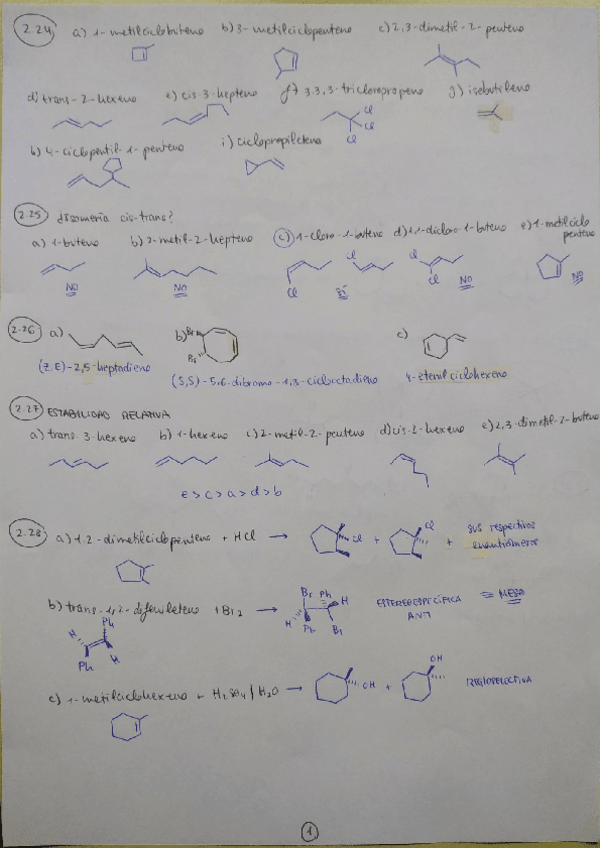 2.24 a) 1-metilciclobuteno b) 3-metilciclopenteno c) 2,3-dimetil-2-penteno
d) trans-2-hexeno e) cis-3-hepteno f) 3,3,3-tricloropropeno g) isobutileno
Cl
Cl
Cl
h) 4-ciclopentil-1-penteno i) ciclopropileteno
2.25 ¿Isomería cis-trans?
a) 1-buteno b) 2-metil-2-hepteno c) 1-cloro-1-buteno d) 1,1-dicloro-1-buteno e) 1-metilciclo
penteno
Cl Cl
Cl Cl
NO NO Sí NO NO
2.26 a) b) c)
Br
Br
(Z,E)-2,5-heptadieno (S,S)-5,6-dibromo-1,3-ciclooctadieno 4-etenilciclohexeno
2.27 ESTABILIDAD RELATIVA
a) trans-3-hexeno b) 1-hexeno c) 2-metil-2-penteno d) cis-2-hexeno e) 2,3-dimetil-2-buteno
e > c > a > d > b
2.28 a) 1,2-dimetilciclopenteno + HCl → Cl + Cl + sus respectivos
enantiómeros
b) trans-1,2-difenileteno + Br2 → Br Ph H ESTEREOESPECÍFICA ≡ MESO
H Ph Br ANTI
Ph
H
H
Ph
c) 1-metilciclohexeno + H2SO4/H2O → OH + OH
1